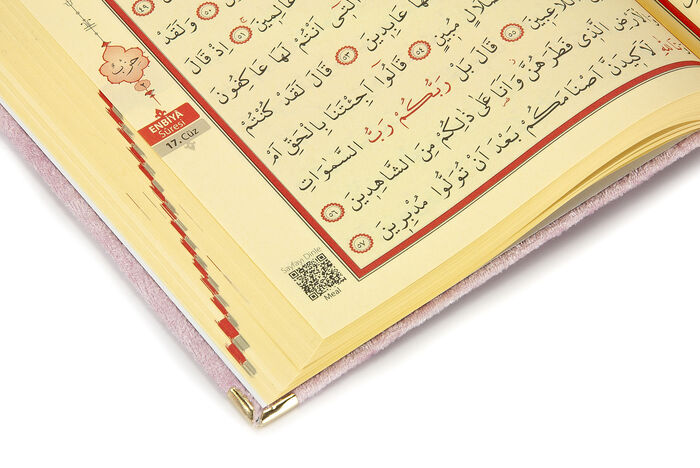 ٤٩
وَلَقَدْ
عَالِمٖينَ ٥١ اِذْ قَالَ
الَّتٖٓي اَنْتُمْ لَهَا عَاكِفُونَ
لَهَا عَابِدٖينَ ٥٣ قَالَ لَقَدْ كُنْتُمْ
ضَلَالٍ مُبٖينٍ ٥٤ قَالُٓوا اَجِئْتَنَا بِالْحَقِّ اَمْ
اللَّاعِبٖينَ ٥٥ قَالَ بَلْ رَبُّكُمْ رَبُّ السَّمٰوَاتِ
وَالْاَرْضِ الَّذٖي فَطَرَهُنَّ وَاَنَا۬ عَلٰى ذٰلِكُمْ مِنَ الشَّاهِدٖينَ ٥٦
لَاَكٖيدَنَّ اَصْنَامَكُمْ بَعْدَ اَنْ تُوَلُّوا مُدْبِرٖينَ ٥٧
حزب
ENBİYÂ
Sûresi
17. Cüz
Sayfayı Dinle
Meal